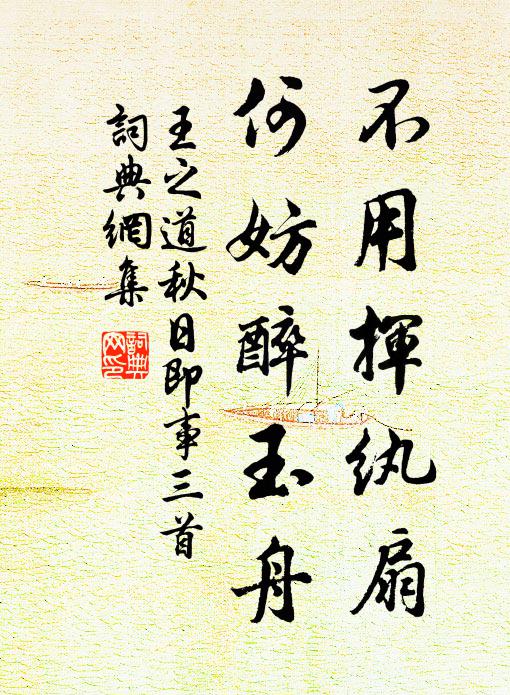 不用揮紈扇
何妨醉玉舟
王之道秋日即事三首
詞典網集
詞典網印